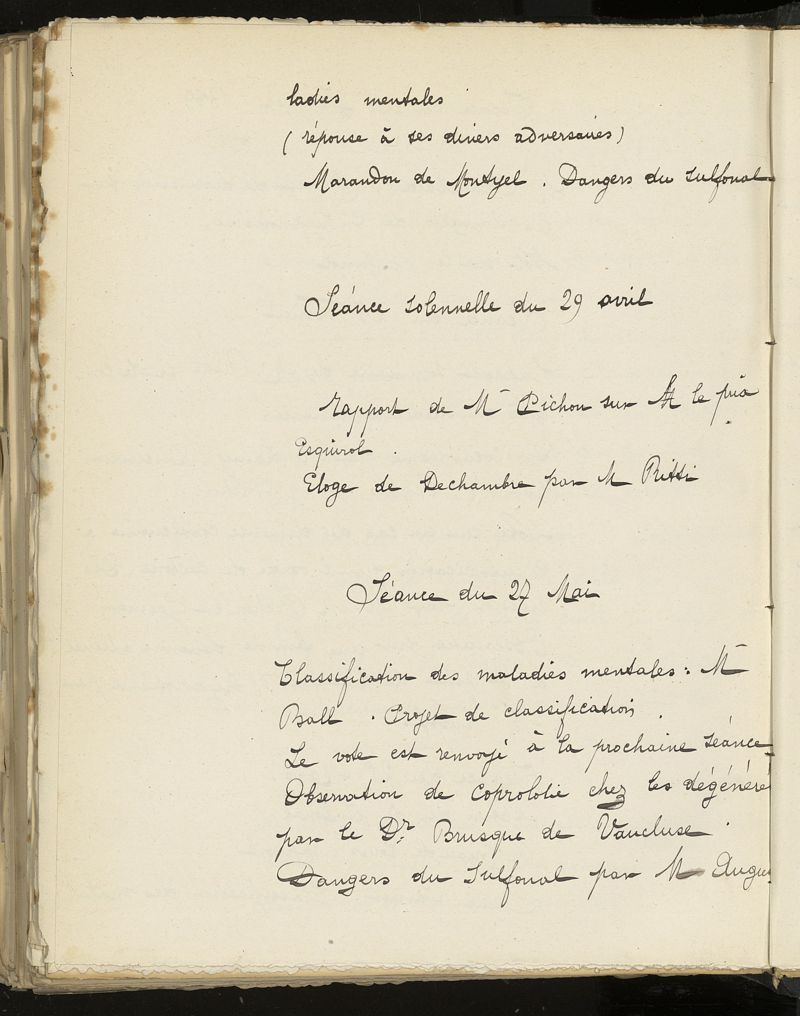 ladies mentales
(réponse à ses divers adversaires)
Marandon de Montyel. Dangers du sulfonal
Séance solennelle du 29 avril
rapport de M Pichon sur le prix
Esquirol.
Eloge de Dechambre par M Ritti
Séance du 27 Mai
Classification des maladies mentales: M
Ball. Projet de classification.
Le vote est renvoyé à la prochaine séance
Observation de Coprololie chez les dégénéré
par le Dr. Brusque de Vaucluse.
Dangers du Sulfonal par M